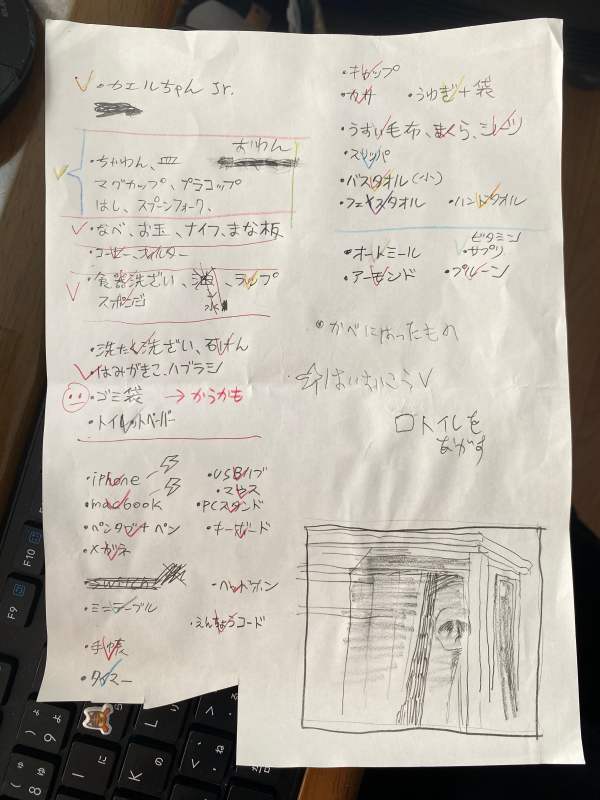 ・カエルちゃん Jr.
おわん
・ちゃわん、皿
マグカップ、プラコップ
はし、スプーンフォーク、
・なべ、お玉、ナイフ、まな板
・コーヒー、フィルター
・食器洗ざい、油、ラップ
スポンジ
水
・洗たく洗ざい、石けん
・はみがきこ、ハブラシ
・ゴミ袋 → からかも
・トイレットペーパー
・iphone
・macbook
・ペンタブ+ペン
・メガネ
・USBハブ
・マウス
・PCスタンド
・キーボード
switch
・ヘッドホン
・ミニテーブル
・えんちょうコード
・手帳
・タイマー
・キャップ
・カサ
・うわぎ+袋
・うすい毛布、まくら、シーツ
・スリッパ
・バスタオル(小)
・フェイスタオル
・ハンドタオル
・オートミール
ビタミン
・サプリ
・アーモンド
・プルーン
かべにはったもの
ロトイレを
ながす
F10
F9